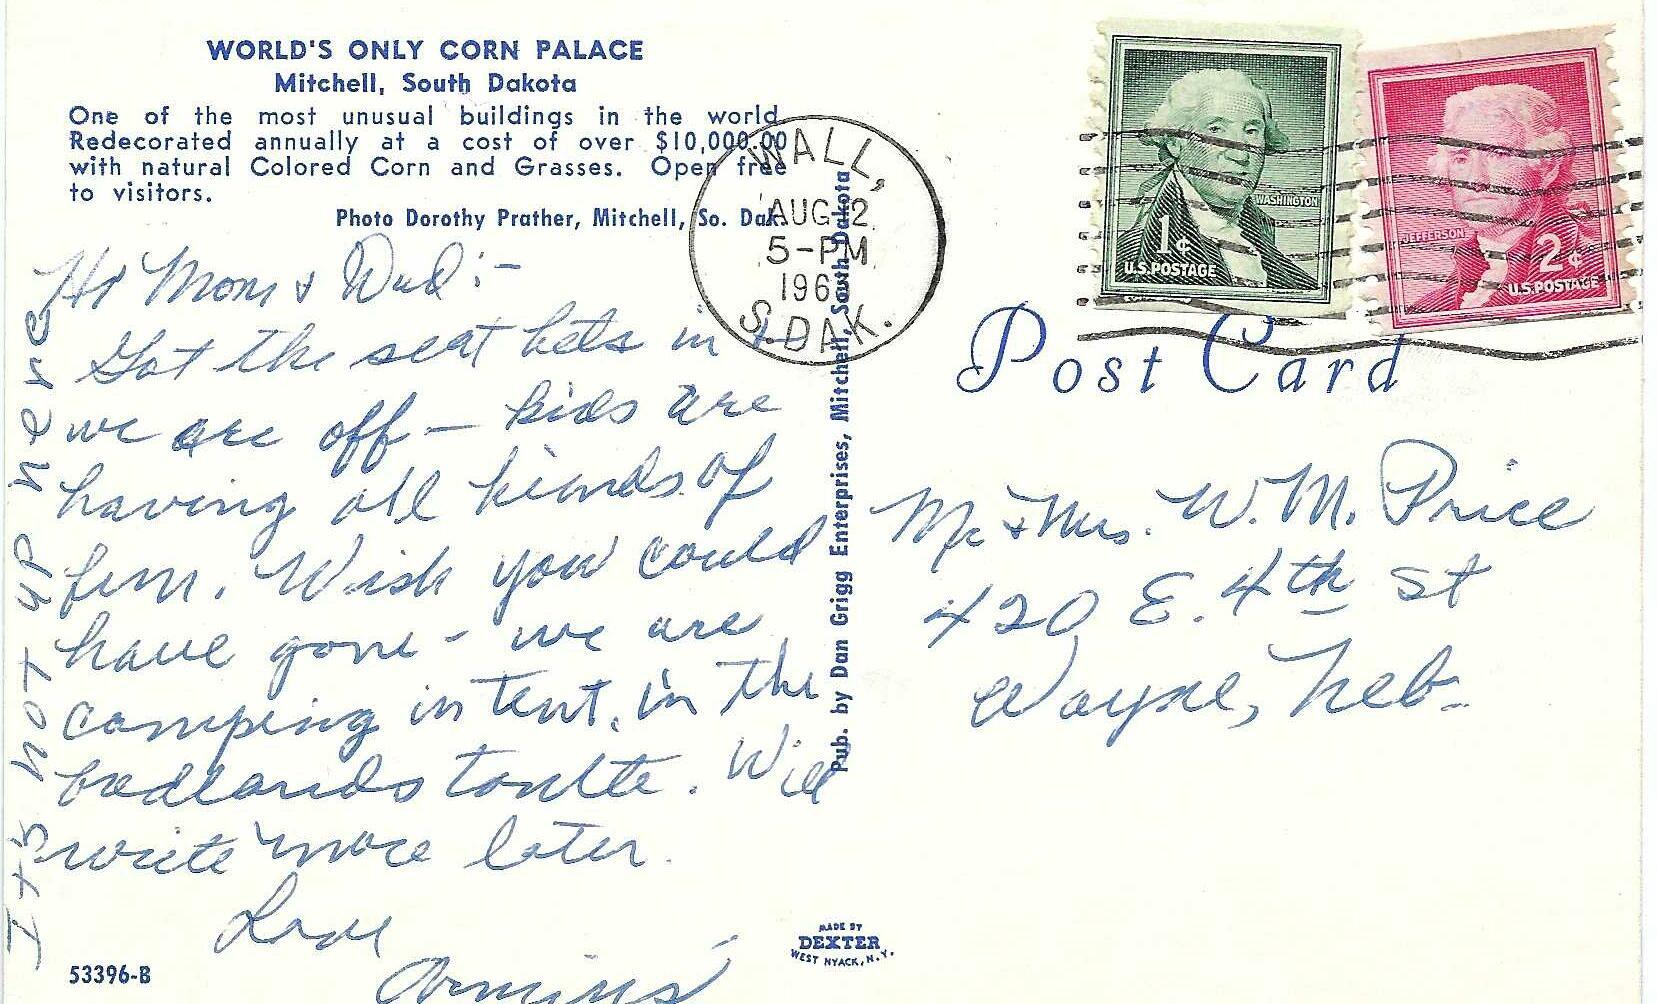 WORLD'S ONLY CORN PALACE
Mitchell, South Dakota
One of the most unusual buildings in the world.
Redecorated annually at a cost of over $10,000.00
with natural Colored Corn and Grasses. Open free
to visitors.
Photo Dorothy Prather, Mitchell, So. Dak.
WALL,
AUG 12
5-PM
196
S. DAK.
WASHINGTON
1¢
U.S. POSTAGE
JEFFERSON
2¢
U.S. POSTAGE
Post Card
Hi Mom & Dad:-
Got the seat belts in &
we are off — kids are
having all kinds of
fun. Wish you could
have gone - we are
camping in tent, in the
badlands tonite. Will
write more later.
Love
Its not up here
Mr & Mrs. W. M. Price
420 E. 4th St
Wayne, Neb.
Pub. by Dan Grigg Enterprises, Mitchell, South Dakota
MADE BY
DEXTER
WEST NYACK, N.Y.
53396-B